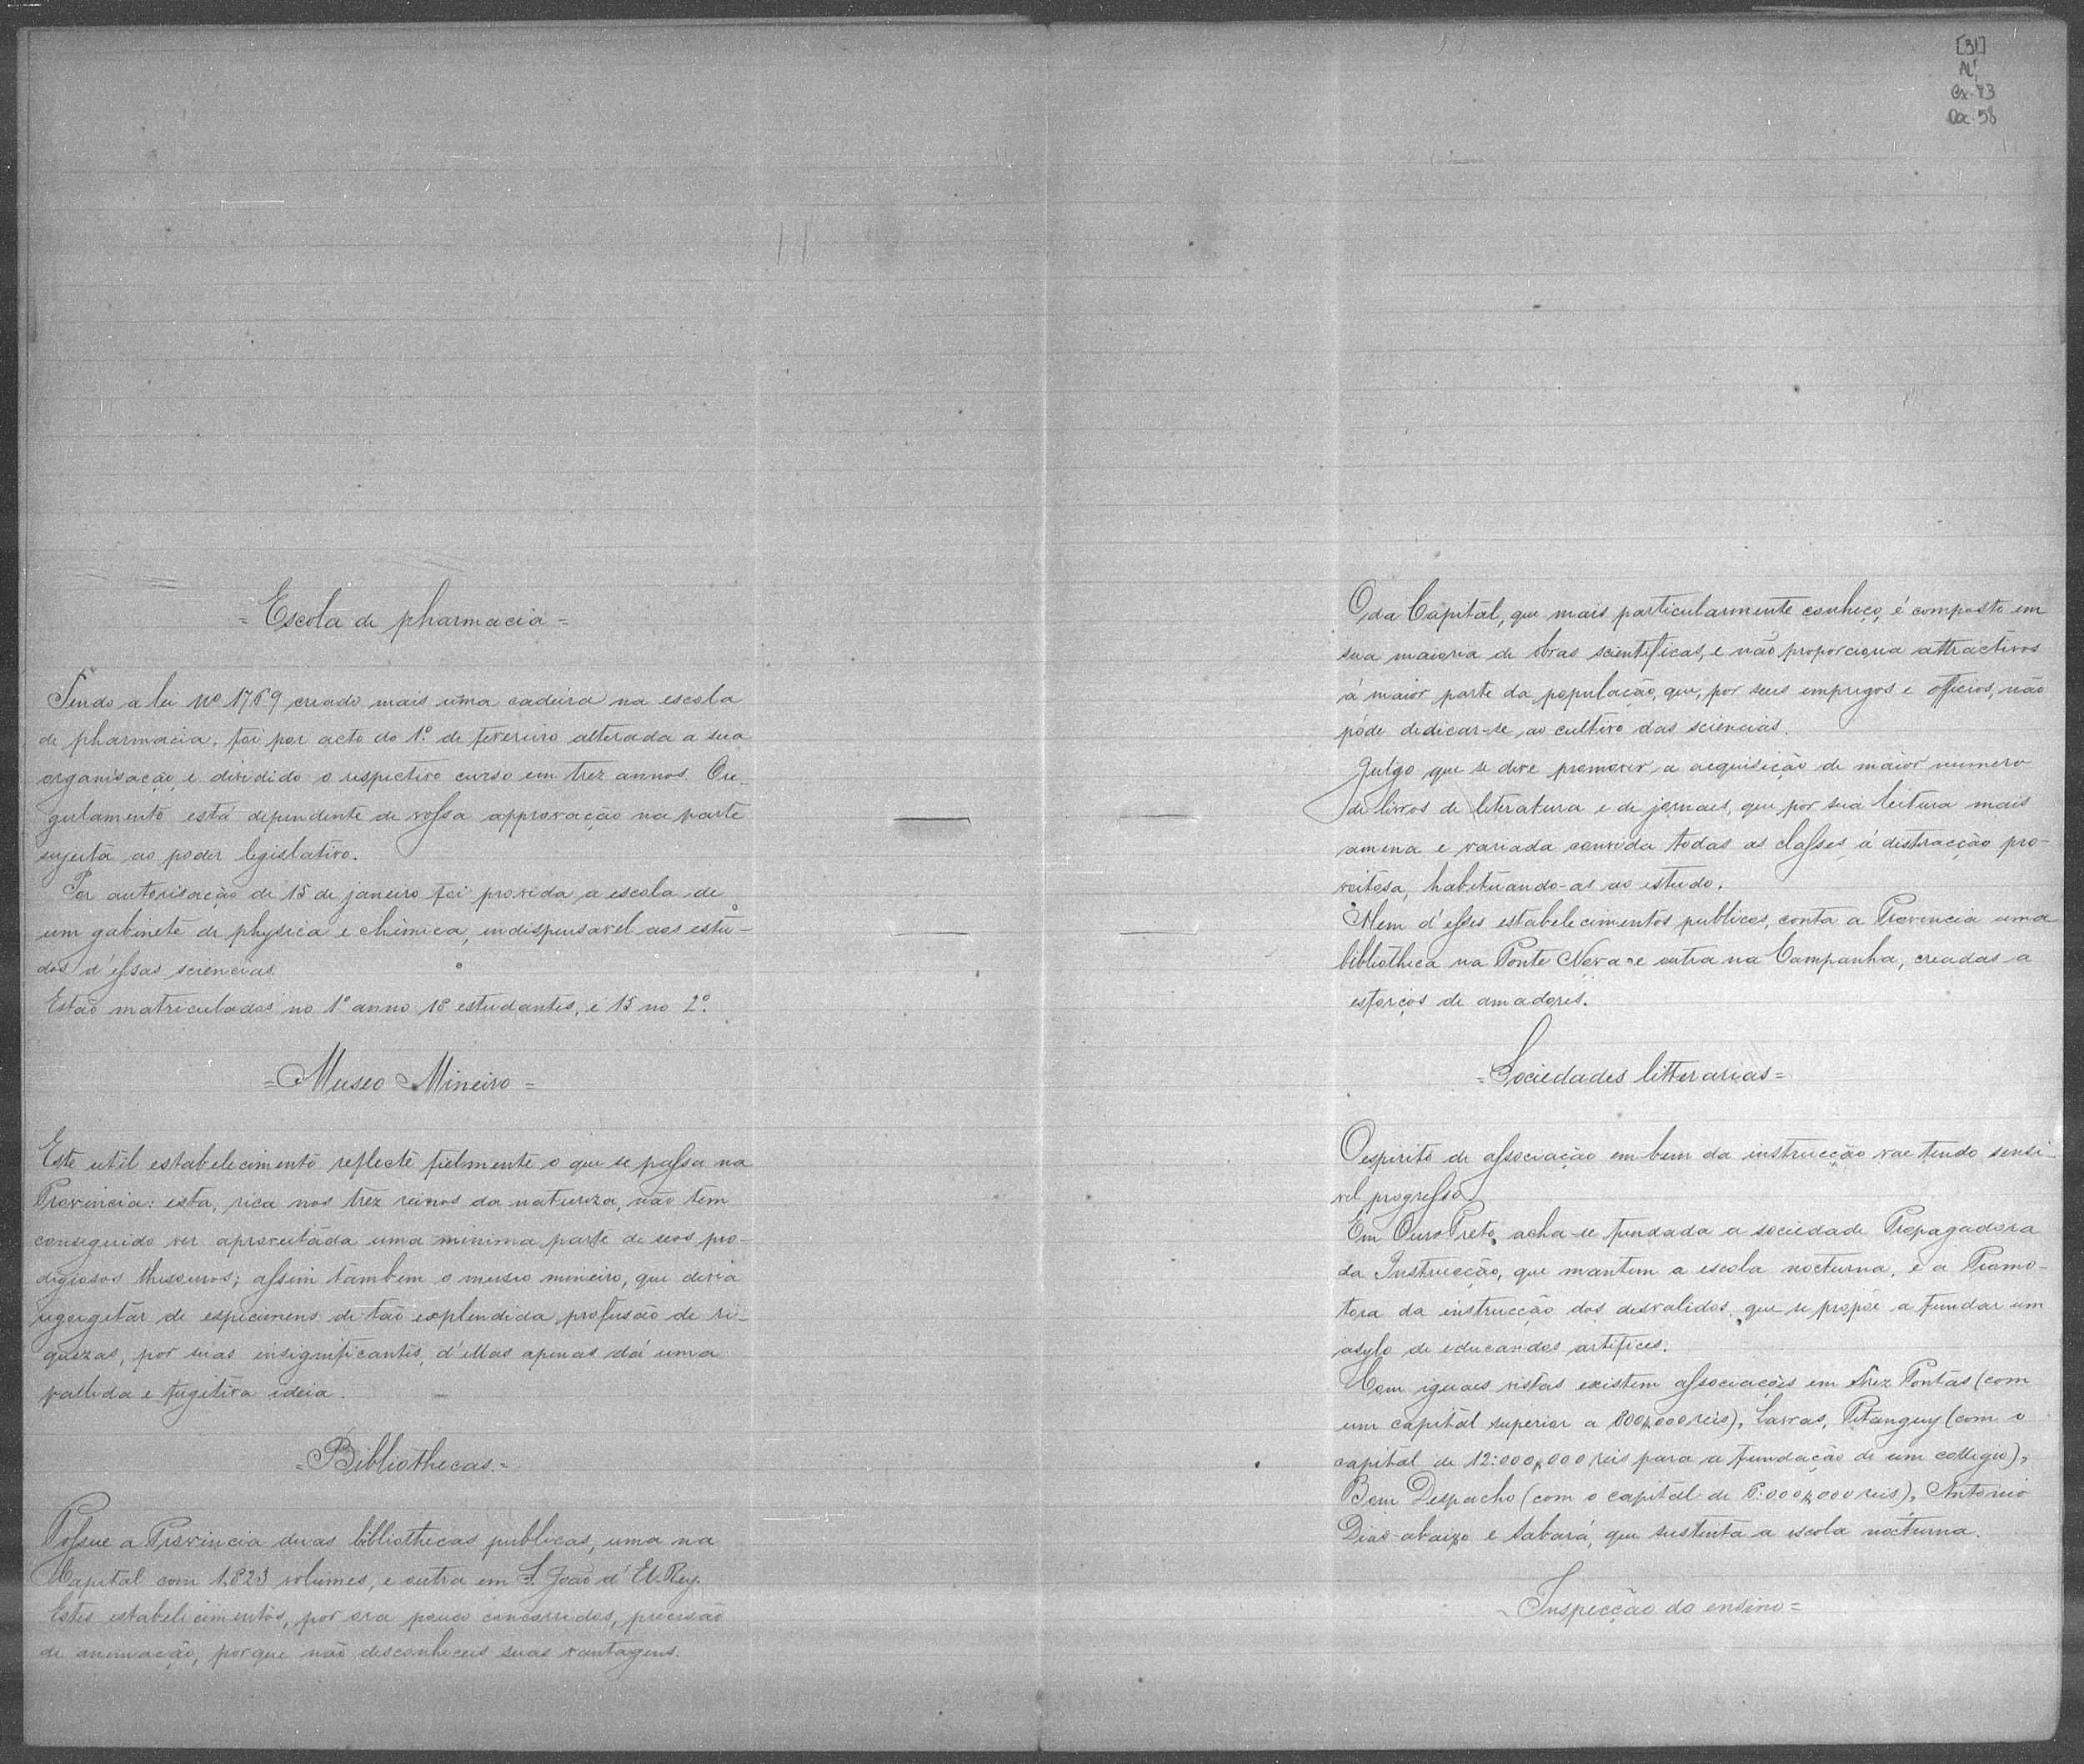 = Escola de pharmacia =
Tendo a lei Nº 1769 creado mais uma cadeira na escola
de pharmacia, foi por acto do 1º de fevereiro alterada a sua
organisação, e dividido o respectivo curso em trez annos. O re-
gulamento está dependente de vossa approvação na parte
sujeita ao poder legislativo.
Por autorisação de 15 de janeiro foi provida a escola de
um gabinete de physica e chimica, indispensavel aos estu-
dos d'essas sciencias.
Estão matriculados no 1º anno 18 estudantes, e 15 no 2º.
= Museo Mineiro =
Este util estabelecimento reflecte fielmente o que se passa na
Provincia: esta, rica nos trez reinos da natureza, não tem
conseguido ver aproveitada uma minima parte de seos pro-
digiosos thesouros; assim tambem o museo mineiro, que devia
regorgitar de especimens de tão explendida profusão de ri-
quezas, por suas insignificantes, d'ellas apenas dá uma
pallida e fugitiva ideia.
= Bibliothecas. =
Possue a Provincia duas bibliothecas publicas, uma na
Capital com 1,823 volumes, e outra em S. João d'El-Rey.
Estes estabelecimentos, por ora pouco concorridos, precisão
de animação, porque não desconheceis suas vantagens.
[31]
Cx. 83
Doc. 58
O da Capital, que mais particularmente conheço, é composto em
sua maioria de obras scientificas, e não proporciona attractivos
á maior parte da população, que, por seus empregos e officios, não
póde dedicar-se ao cultivo das sciencias.
Julgo que se deve promover a acquisição de maior numero
de livros de literatura e de jornaes, que por sua leitura mais
amena e variada convida todas as classes á distracção pro-
veitosa, habituando-as ao estudo.
Alem d'esses estabelecimentos publicos, conta a Provincia uma
bibliotheca na Ponte Nova e outra na Campanha, creadas a
esforços de amadores.
= Sociedades litterarias =
O espirito de associação em bem da instrucção vae tendo sensi-
vel progresso.
Em Ouro Preto, acha-se fundada a sociedade Propagadora
da Instrucção, que mantem a escola nocturna, e a Promo-
tora da instrucção dos desvalidos, que se propõe a fundar um
asylo de educandos artifices.
Com iguaes vistas existem associações em Trez Pontas (com
um capital superior a 800$000 reis), Lavras, Pitanguy (com o
capital de 12:000$000 reis para a fundação de um collegio),
Bom Despacho (com o capital de 8:000$000 reis), Antonio
Dias-abaixo e Sabará, que sustenta a escola nocturna.
= Inspecção do ensino =